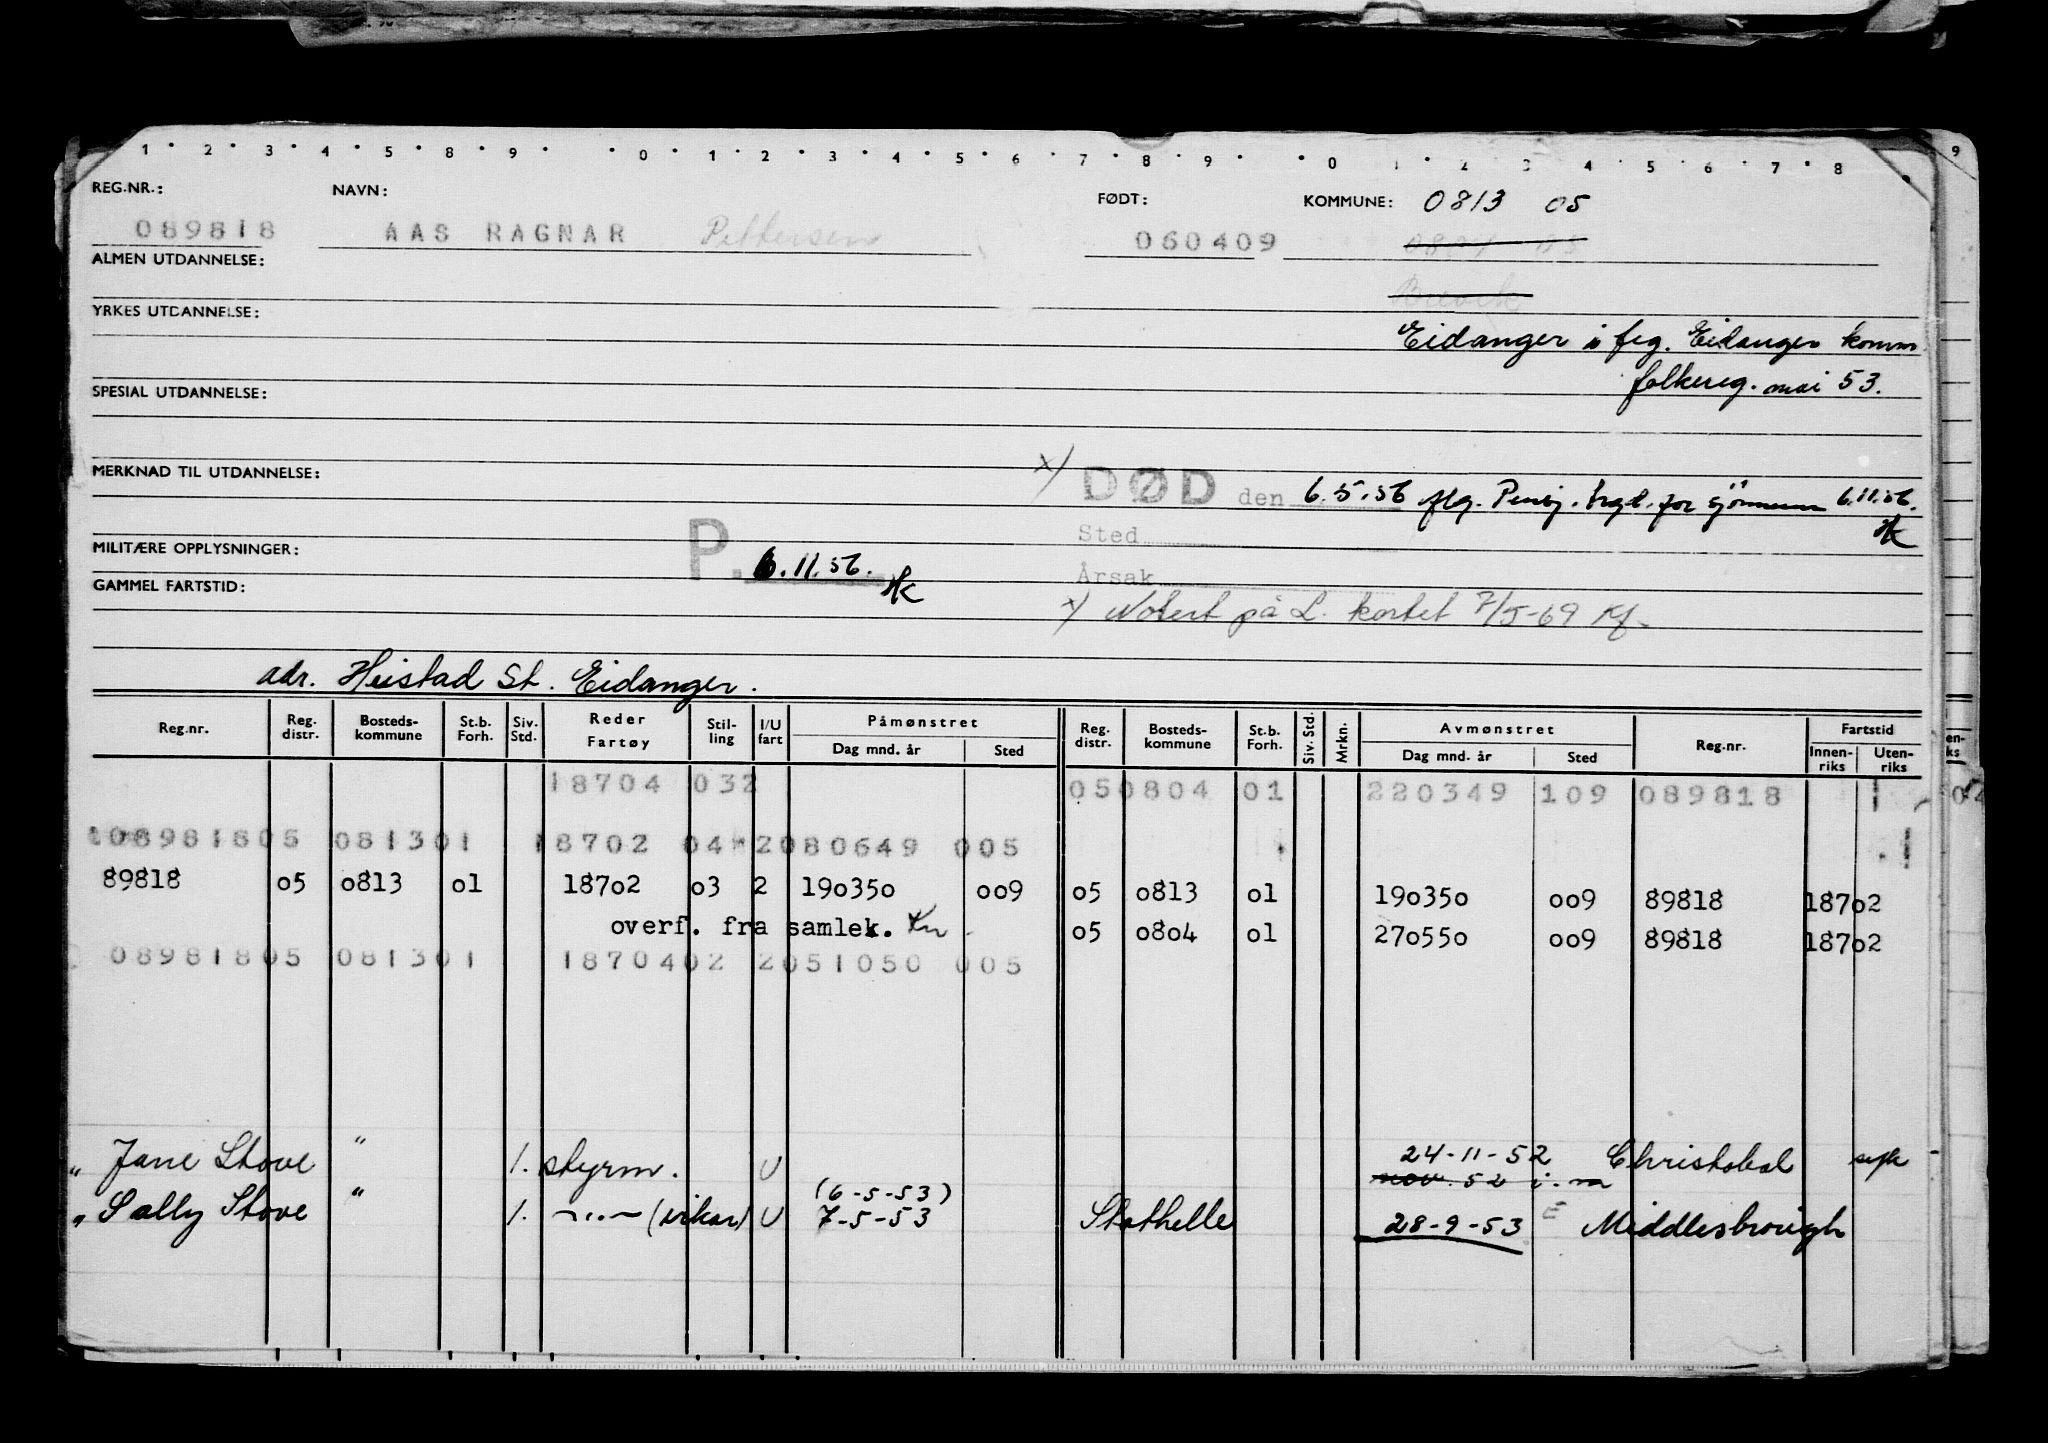 1 · 2 · 3 · 4 · 5 · 8 · 9 · · 0 · 1 · 2 · 3 · 4 · 5 · 6 · 7 · 8 · 9 · · 0 · 1 · 2 · 3 · 4 · 5 · 6 · 7 · 8 · 9
REG.NR.: NAVN: FØDT: KOMMUNE: 0813 05
089818 AAS RAGNAR Pettersen 060409 0804 05
ALMEN UTDANNELSE:
Brevik
YRKES UTDANNELSE:
Eidanger i flg. Eidanger komm.
folkereg. mai 53.
SPESIAL UTDANNELSE:
MERKNAD TIL UTDANNELSE:
x) DØD den 6.5.56 flg. Pensj. trgd. for sjömenn 6.11.56.
HK
Sted
MILITÆRE OPPLYSNINGER: P. 6.11.56. HK
Årsak
GAMMEL FARTSTID:
x) Notert på L. kortet 7/5-69 Kf.
adr. Heistad St. Eidanger.
Reg.nr. Reg. distr. Bosteds-kommune St.b. Forh. Siv. Std. Reder Fartøy Stil-ling I/U fart Påmønstret Dag mnd. år Sted Reg. distr. Bosteds-kommune St.b. Forh. Siv. Std. Mrkn. Avmønstret Dag mnd. år Sted Reg.nr. Fartstid Innen-riks Uten-riks
18704 032 050804 01 220349 109 089818 1
08981805 081301 18702 04 2080649 005
89818 05 0813 01 18702 03 2 190350 009 05 0813 01 190350 009 89818 18702
overf. fra samlek. Kn. 05 0804 01 270550 009 89818 18702
08981805 081301 1870402 2051050 005
" Jane Stove " 1. styrm. U 24-11-52 Christobal syk
nov. 52 i. m
(6-5-53)
" Sally Stove " 1. —"— (vikar) U 7-5-53 Stathelle 28-9-53 E Middlesbrough